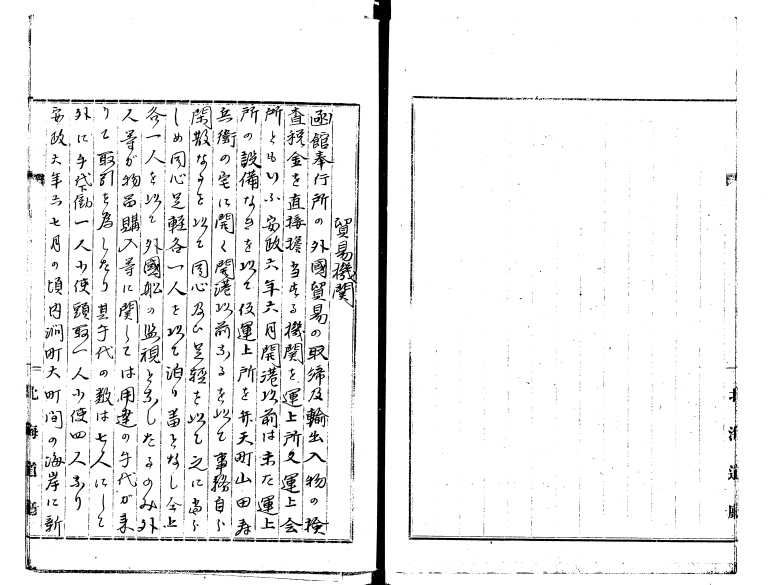 貿易機関
函館奉行所の外國貿易の取締及輸出入物の検
査税金を直接擔当する機関を運上所又運上会
所ともいふ安政六年六月開港以前は未た運上
所の設備なきを以て仮運上所を弁天町山田寿
兵衛の宅に開く開港以前なるを以て事務自ら
閑散なるを以て同心及ひ足軽を以て之に当ら
しめ同心足軽各一人を以て泊り番となし今上
各一人を以て外國船の監視となしたるのみ外
人等が物品購入等に関しては用達の手代が来
りて取引を為したり其手代の数は七人にして
外に手代働一人小使頭取一人小使四人なり
安政六年六七月の頃内澗町大町間の海岸に新
北海道廳
北海道廳